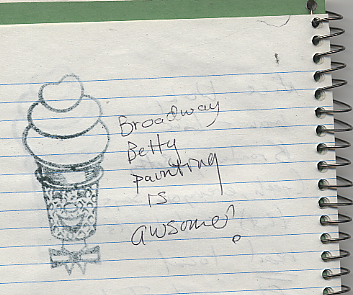 Broadway
Betty
painting
is
awsome?